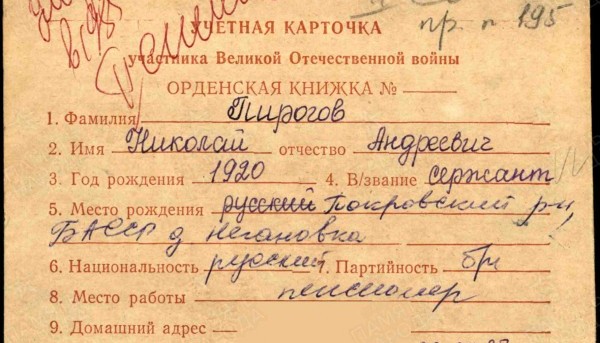 пр. п 195
УЧЕТНАЯ КАРТОЧКА
участника Великой Отечественной войны
ОРДЕНСКАЯ КНИЖКА №
1. Фамилия Пирогов
2. Имя Николай отчество Андреевич
3. Год рождения 1920 4. В/звание сержант
5. Место рождения русский Покровский р-н,
БАССР д Негановка
6. Национальность русский 7. Партийность б/п
8. Место работы пенсионер
9. Домашний адрес